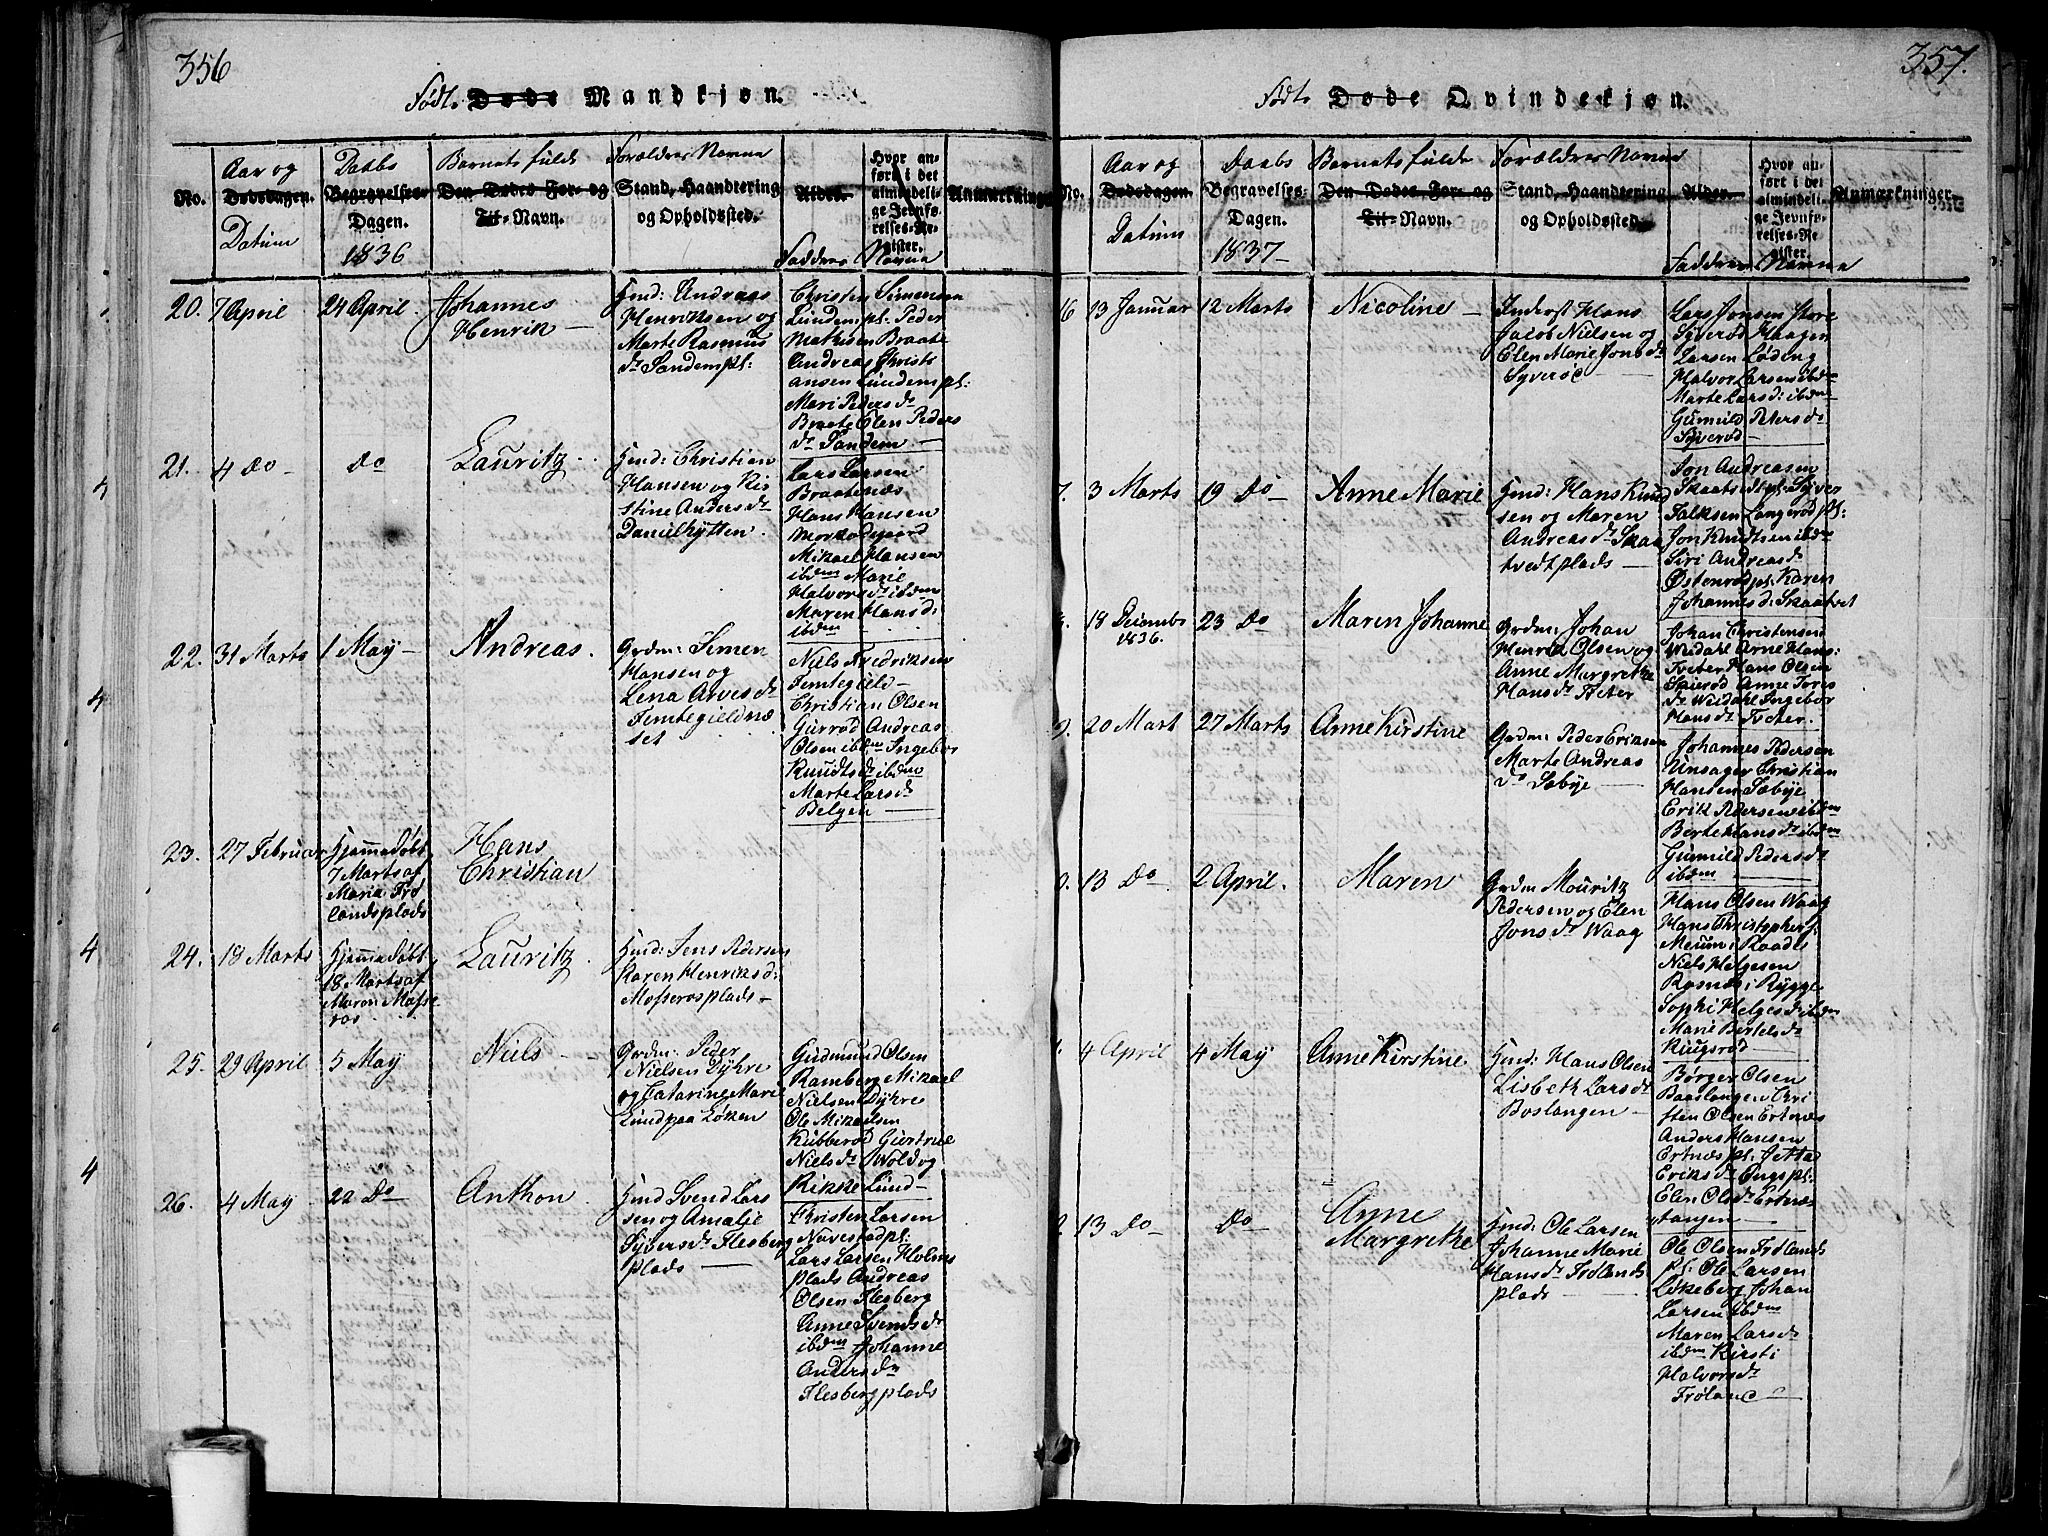 356
Födte Døde Mandkjøn.
No.
Aar og
Dødsdagen.
Datum
Daabs
Begravelses-
Dagen.
1836
Barnets fulde
Den Dødes For- og
Til-Navn.
Forældres Navne
Stand, Haandtering
og Opholdssted.
Alder.
Hvor an-
ført i det
almindeli-
ge Jevnfø-
relses-Re-
gister.
Faddere Navne
Anmærkninger
20. 7 April
24 April.
Johannes
Henrik
Hmd: Andreas
Henriksen og
Marte Rasmus
dr Sandempl:
Christen Simensen
Lundempl: Peder
Mathisen Braate
Andreas Christi
ansen Lundempl:
Mari Peders dr
Braate Elen Peders
dr Sandem
21. 4 do
do
Lauritz
Hmd: Christian
Hansen og Kis
stine Anders dr
Danielhytten.
Lars Larsen
Braatenæs
Hans Hansen
Mikael Hansen
ibdm Marie
Halvors dr ibdm
Maren Hans d:
ibdm
22. 31 Marts
1 May
Andreas.
Grdm: Simen
Hansen og
Lena Arves dr
Femtegieldnæ
set
Niels Fredriksen
Femtegield
Christian Olsen
Gurrød Andreas
Olsen ibdm Ingebor
Knudts dr ibdm
Marte Lars dr
Belgen
23. 27 Februar
Hjemmedøbt
7 Marts af
Maria Frø
landsplads
Hans
Christian
24. 18 Marts
Hjemmedøbt
18 Marts af
Maren Mosse
ros
Lauritz
Hmd: Jens Pedersen
Karen Henriks d:
Mosserosplads
25. 29 April
5 May
Niels
Grdm: Peder
Nielsen Dyhre
og Catarine Marie
Lund paa Løken
Gudmund Olsen
Ramberg Mikael
Nielsen Dyhre
Ole Mikaelsen
Kubberød Gurtrue
Niels dr Wold og
Rikke Lund
26. 4 May
22 Do
Anthon
Hmd Svend Lar
sen og Amalie
Syvers dr Flesberg
plads
Christen Larsen
Navestadpl:
Lars Larsen Holms
plads Andreas
Olsen Flesberg
Anne Svends dr
ibdm Johanne
Anders dr
Flesberg plads
357.
Födte Døde Qvindekjøn.
No.
Aar og
Dødsdagen.
Datum
Daabs
Begravelses-
Dagen.
1837
Barnets fulde
Den Dødes For- og
Til-Navn.
Forældres Navne
Stand, Haandtering
og Opholdssted.
Alder.
Hvor an-
ført i det
almindeli-
ge Jevnfø-
relses-Re-
gister.
Faddernes Navne
Anmærkninger.
6 13 Januar
12 Marts
Nicoline
Inderst Hans
Jacob Nielsen og
Elen Marie Jons dr
Syverød
Lars Jonsen Store
Syverød Haagen
Larsen Løding
Halvor Larsen ibdm
Marte Lars d: ibdm
Gunnild Peters dr
Syverød
7. 3 Marts
19 Do
Anne Marie
Hmd: Hans Knud
sen og Maren
Andreas dr Skaa
tvedt plads
Jon Andreasen
Skaatvedtpl: Syver
Falksen Langerød pl:
Jon Knudtsen ibdm
Siri Andreas dr
Østenrød pl: Karen
Johannes d: Skaatvet
18 Decembr
1836.
23 Do
Maren Johanne
Grdm: Johan
Henrik Olsen og
Anne Margrethe
Hans dr Tveter
Johan Christensen
Weidahl Arne Hans:
Tveter Hans Olsen
Saierød Anne Tores
dr Weidahl Ingebor
Hans dr Tveter.
9. 20 Mart
27 Marts
Anne Kirstine
Grdm: Peder Eriksen
Marte Andreas
dr Sæbye
Johannes Pedersen
Unsager Christian
Hansen Sæbye
Erik Pedersen ibdm
Berte Hans dr ibdm
Gunnild Peders dr
ibdm
0. 13 Do
2 April.
Maren
Grdm Mouritz
Pedersen og Elen
Jons dr Waag
Hans Olsen Waag
Hans Christophers:
Merum i Raade
Niels Helgesen
Rosnæs i Rygge
Sophi Helges d ibdm
Marie Bertels dr
Kiugsrød
1. 4 April
4 May
Anne Kirstine
Hmd: Hans Olsen
Lisbeth Lars dr
Boslangen
Børger Olsen
Baaslangen Chri
sten Olsen Ertnæs
Anders Hansen
Ertnæs pl: Jetta
Eriks dr Engs pl:
Elen Ols dr Ertnæs
tangen
2. 13 Do
Do
Anne
Margrethe
Hmd: Ole Larsen
Johanne Marie
Hans dr Frølands
plads
Ole Olsen Frølands
pl: Ole Larsen
Løkeberg Johan
Larsen ibdm
Maren Lars dr
ibdm Kirsti
Halvors dr
Frøland